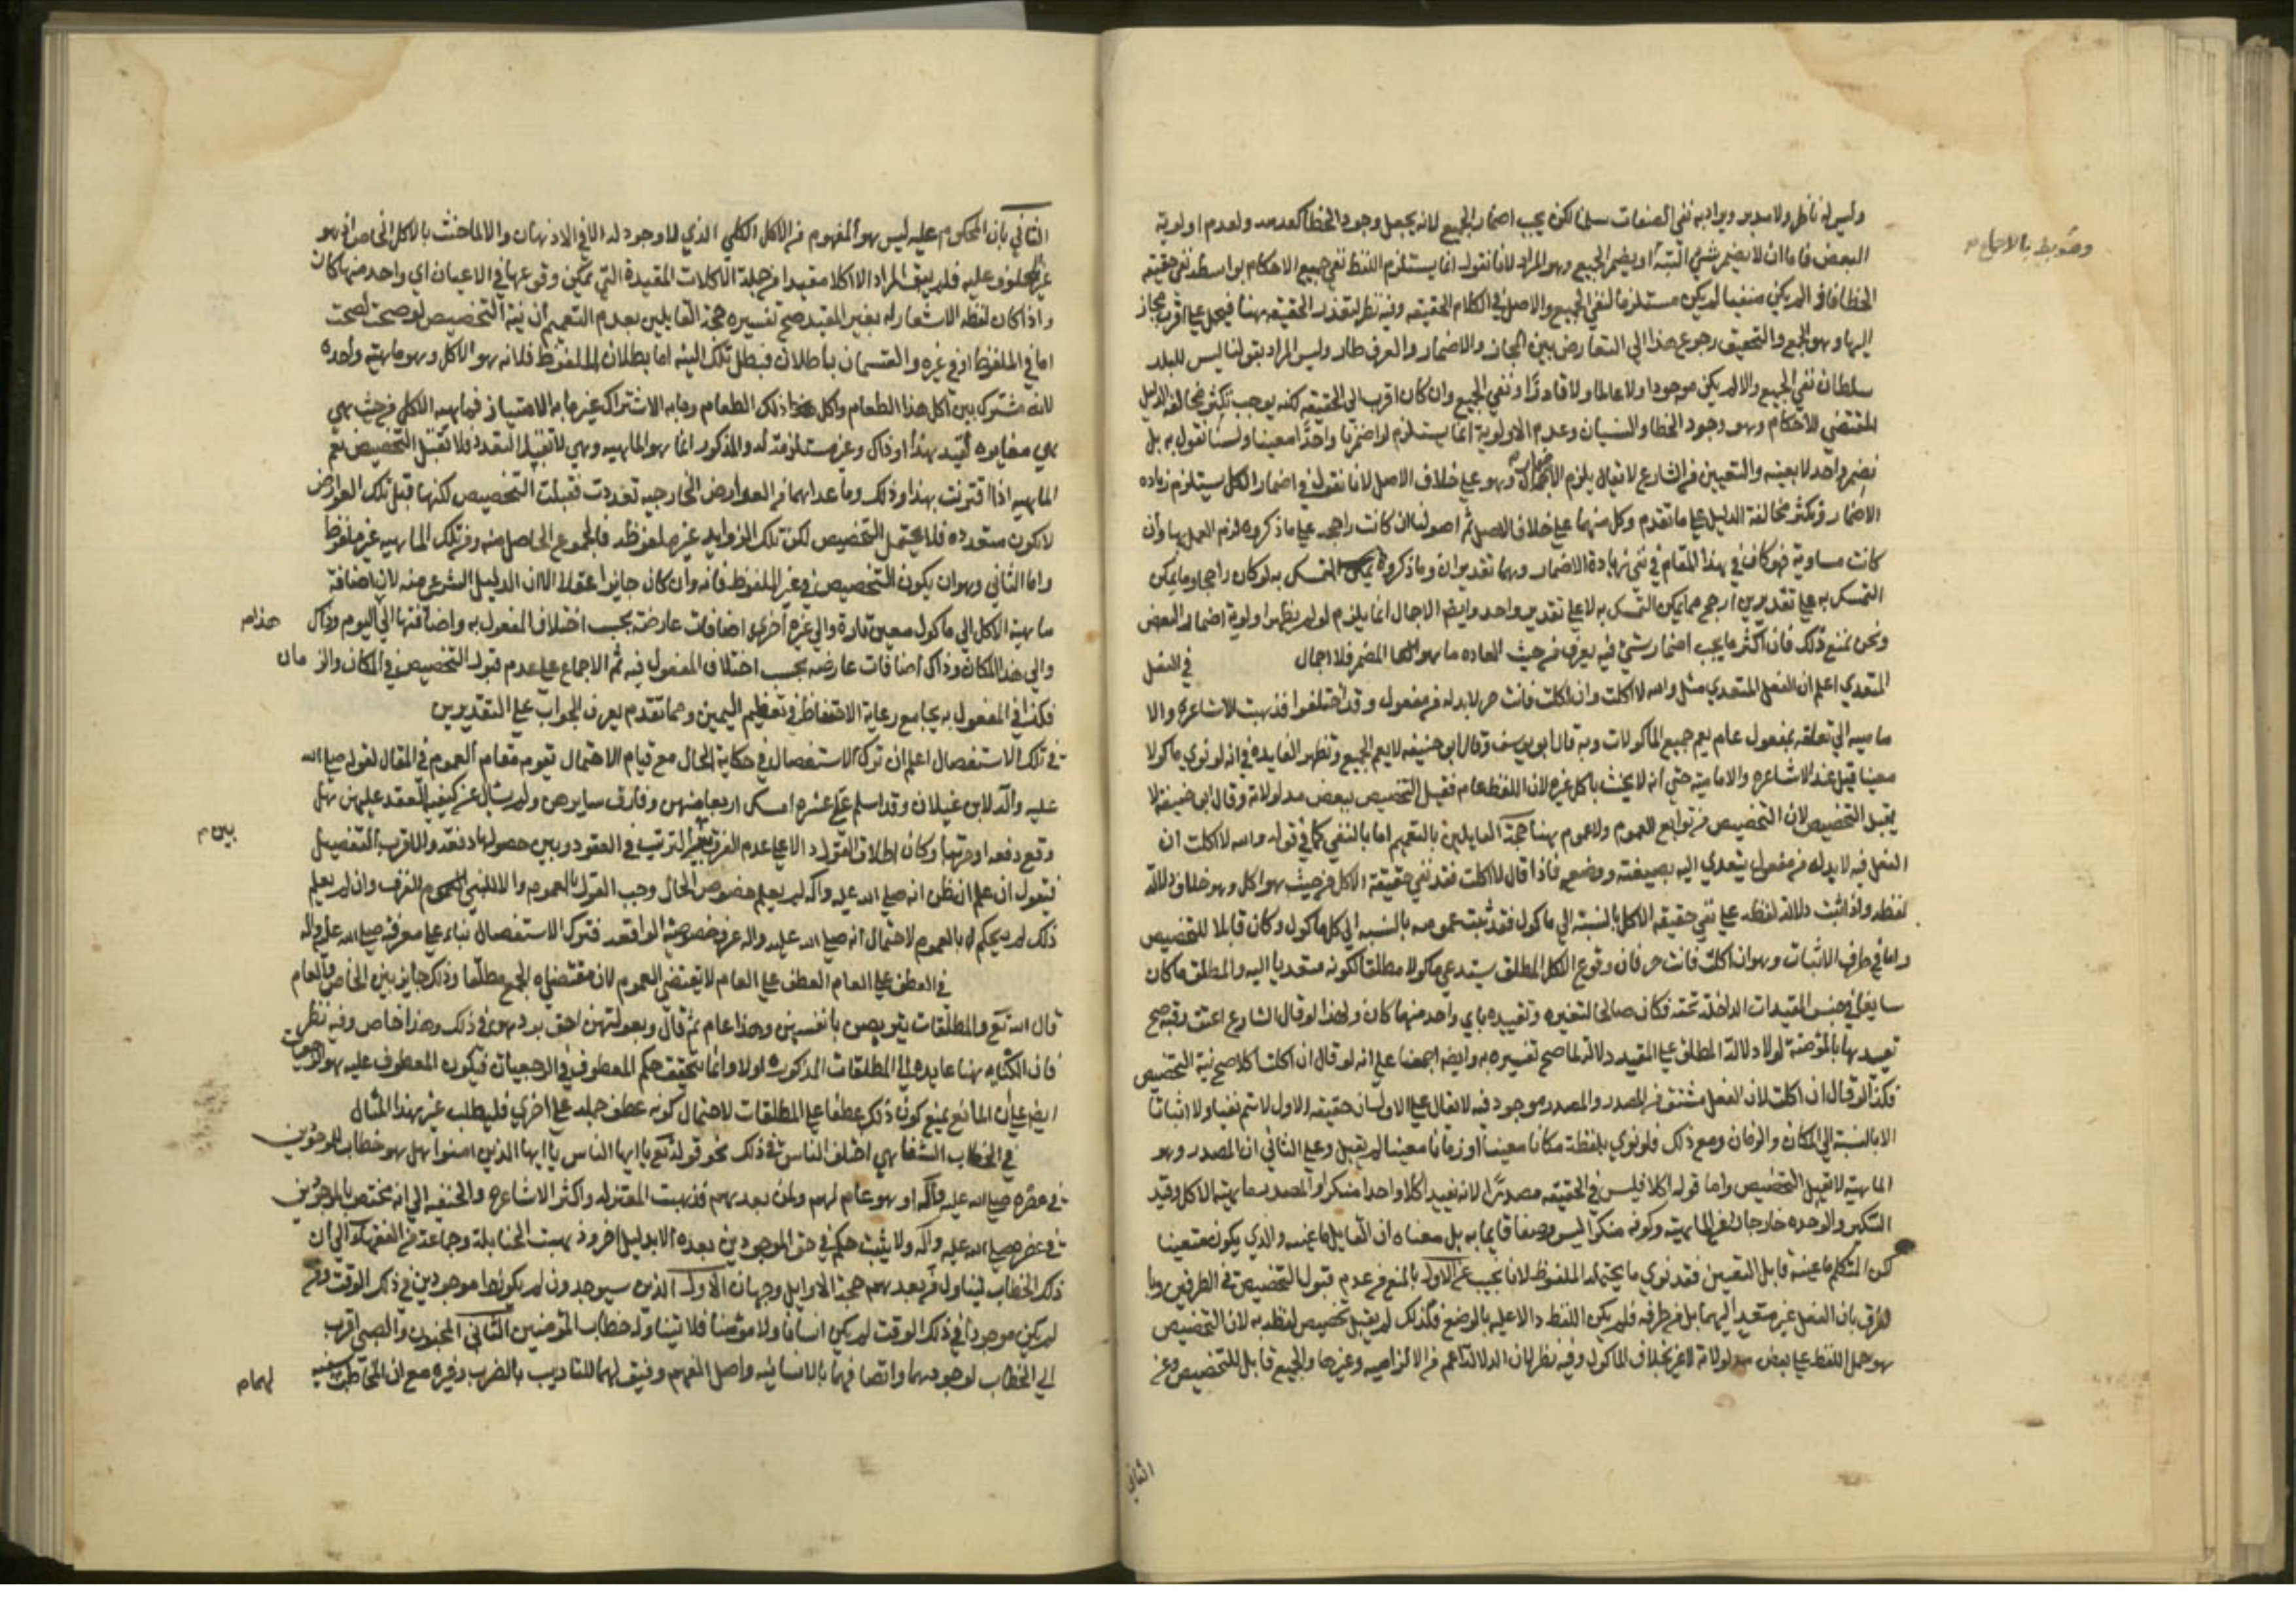 وليس له ناطل ولا مدبر ويراد به نفي الصفات سلمنا لكن يجب اضمار الجميع لانه يجعل وجود الخطا كعدمه ولعدم اولوية
البعض فاما ان لا يضمر شئ البتة او يضمر الجميع وهو المراد لانا نقول انما يستلزم اللفظ نفي جميع الاحكام بواسطة نفي حقيقة
الخطا فاذا لم يكن منفيا لم يكن مستلزما لنفي الجميع والاصل في الكلام الحقيقه وفيه نظر لتعذر الحقيقه هنا فيحمل علي اقرب مجاز
اليها وهو الجميع والتحقيق رجوع هذا الي التعارض بين المجاز والاضمار والعرف طار وليس المراد بقولنا ليس للبلد
سلطان نفي الجميع والا لم يكن موجودا ولا عالما ولا قادرا ونفي الجميع وان كان اقرب الي الحقيقه لكنه يوجب تكثير مخالفة الدليل
المقتضي للاحكام وهو وجود الخطا والنسيان وعدم الاولوية انما يستلزم لو اضمرنا واحدا معينا ولسنا نقول به بل
نضمر واحد لا بعينه والتعيين من الشارع لا يقال يلزم الاجمال وهو علي خلاف الاصل لانا نقول في اضمار الكل يستلزم زياده
الاضمار وتكثر مخالفة الدليل علي ما تقدم وكل منهما علي خلاف الاصل ثم اصولنا ان كانت راجحه علي ما ذكروه لزم العمل بها وان
كانت مساوية فهو كاف في هذا المقام في نفي زيادة الاضمار وهما تقديران وما ذكروه يمكن التمسك به لو كان راجحا وما يمكن
التمسك به علي تقديرين ارجح مما يمكن التمسك به لا علي تقدير واحد وايضا الاجمال انما يلزم لو لم يظهر اولوية اضمار البعض
ونحن نمنع ذلك فان اكثر ما يجب اضمار شئ فيه يعرف من حيث العاده ما هو المضمر فلا اجمال في الفعل
المتعدي اعلم ان الفعل المتعدي مثل والله لا اكلت وان اكلت فانت حر لا بد له من مفعول وقد اختلفوا فذهبت الاشاعره والا
ماميه الي تعلقه بمفعول عام يعم جميع الماكولات وبه قال ابو يوسف وقال ابو حنيفه لا يعم الجميع وتظهر الفايده في انه لو نوي ماكولا
معينا قبل عند الاشاعره والامامية حتي انه لا يحنث باكل غيره لان اللفظ عام فقبل التخصيص ببعض مدلولاته وقال ابو حنيفة لا
يقبل التخصيص لان التخصيص من توابع العموم ولا عموم هنا حجة القايلين بالتعميم اما بالنفي كما في قوله والله لا اكلت ان
الفعل فيه لا بد له من مفعول يتعدي اليه بصيغته ووضعه فاذا قال لا اكلت فقد نفي حقيقة الاكل من حيث هو اكل وهو خلاف دلالة
لفظه واذا ثبت دلالة لفظه علي نفي حقيقه الاكل بالنسبة الي ماكول فقد ثبت عمومه بالنسبه الي كل ماكول وكان قابلا للتخصيص
واما في طرف الاثبات وهو ان اكلت فانت حر فان وقوع الاكل المطلق يستدعي ماكولا مطلقا لكونه متعديا اليه والمطلق ما كان
سايغا في جنس المقيدات الداخلة تحته فكان صالحا لتفسيره وتقييده باي واحد منها كان ولهذا لو قال الشارع اعتق رقبة صح
تقييدها بالمؤمنة لولا دلالة المطلق علي المقيد دلالة لما صح تفسيره به وايضا اجمعنا علي انه لو قال ان اكلت اكلا صح نية التخصيص
فكذا لو قال ان اكلت لان الفعل مشتق من المصدر والمصدر موجود فيه لا يقال علي الاول ان حقيقه الاول لا تتم نفيا ولا اثباتا
الا بالنسبة الي المكان والزمان ومع ذلك فلو نوي بلفظة مكانا معينا او زمانا معينا لم يقبل وعلي الثاني ان المصدر وهو
الماهية لا تقبل التخصيص واما قوله اكلا فليس في الحقيقه مصدرا لانه يفيد اكلا واحدا منكرا والمصدر ماهية الاكل وقيد
التنكير والوحده خارجان عن الماهيه وكونه منكرا ليس وصفا قايما به بل معناه ان القايل ما عينه والذي يكون متعينا
لكن المتكلم ما عينه قابل التعيين فقد نوي ما يحتمله الملفوظ لانا نجيب عن الاول بالمنع من عدم قبول التخصيص في الطرفين وبا
لفرق بان الفعل غير متعد اليهما بل هما ظرفه فلم يكن اللفظ دالا عليه بالوضع فكذلك لم يقبل تخصيص لفظه به لان التخصيص
هو حمل اللفظ علي بعض مدلولاته لا غير بخلاف الماكول وفيه نظر لان الدلالة اعم من الالتزاميه وغيرها والجميع قابل للتخصيص وعن
وضوبط بالاجماع
الثاني
الثاني بان المحكوم عليه ليس هو المفهوم من الاكل الكلي الذي لا وجود له الا في الاذهان والا لما حنث بالاكل الخاص اذ هو
غير المحلوف عليه فلم يبق المراد الا اكلا مقيدا من جملة الاكلات المقيدة التي يمكن وقوعها في الاعيان اي واحد منها كان
واذا كان لفظه لا اشعار له بغير المقيد صح تفسيره حجة القايلين بعدم التعميم ان نية التخصيص لو صحت لصحت
اما في الملفوظ او في غيره والقسمان باطلان فبطل تلك النيه اما بطلان الملفوظ فلانه هو الاكل وهو ماهية واحده
لانه مشترك بين اكل هذا الطعام واكل ذلك الطعام وما به الاشتراك غير ما به الامتياز فماهيه الاكل من حيث هي
هي مغايره لقيد بهذا او ذاك وغير مستلزمة له والمذكور انما هو الماهيه وهي لا تقبل التعدد فلا تقبل التخصيص نعم
الماهيه اذا اقترنت بهذا وذلك وما عداهما من العوارض الخارجيه تعددت فقبلت التخصيص لكنها قبل تلك العوارض
لا تكون متعدده فلا يحتمل التخصيص لكن تلك الزوايد غير ملفوظه فالمجموع الحاصل منه ومن تلك الماهيه غير ملفوظ
واما الثاني وهو ان يكون التخصيص في غير الملفوظ فانه وان كان جايزا عقلا الا ان الدليل الشرعي منعه لان اضافة
ماهية الاكل الي ماكول معين تارة والي غيره اخري اضافات عارضة بحسب اختلاف المفعول به واضافتها الي اليوم وذاك
والي هذا المكان وذاك اضافات عارضه بحسب اختلاف المفعول فيه ثم الاجماع علي عدم قبول التخصيص في المكان والزمان
فكذا في المفعول به بجامع رعاية الاحتفاظ في تعظيم اليمين ومما تقدم يعرف الجواب علي التقديرين
في تلك الاستفصال اعلم ان ترك الاستفصال في حكاية الحال مع قيام الاحتمال تقوم مقام العموم في المقال لقوله صلي الله
عليه واله لابن غيلان وقد اسلم علي عشره امسك اربعا منهن وفارق سايرهن ولم يسال عن كيفية العقد عليهن هل
وقع دفعه او مرتبا وكان اطلاق القول دالا علي عدم الفرق بين الترتيب في العقود وبين حصولها دفعة والاقرب التفصيل
فيقول ان علم او ظن انه صلي الله عليه واله لم يعلم خصوص الحال وجب القول بالعموم وان لم يعلم
ذلك لم يحكم بالعموم لاحتمال انه صلي الله عليه واله عرف خصوصية الواقعه فترك الاستفصال بناء علي معرفته صلي الله عليه واله
في العطف علي العام العطف علي العام لا يقتضي العموم لان مقتضاه الجمع مطلقا وذلك جايز بين الخاص والعام
قال الله تع والمطلقات يتربصن بانفسهن وهذا عام ثم قال وبعولتهن احق بردهن في ذلك وهذا خاص وفيه نظر
فان الكنايه هنا عايده الي المطلقات المذكوره اولا وانما يتحقق حكم المعطوف في الرجعيات فيكون المعطوف عليه هو الرجعيات
ايضا علي ان المانع يمنع كون ذلك عطفا علي المطلقات لاحتمال كونه عطف جملة علي اخري فليطلب غير هذا المثال
في الخطاب الشفاهي اختلف الناس في ذلك نحو قوله تع يا ايها الناس يا ايها الذين امنوا هل هو خطاب للموجودين
في عصره صلي الله عليه واله او هو عام لهم ولمن بعدهم فذهبت المعتزله واكثر الاشاعره والحنفيه الي انه مختص بالموجودين
في عصره صلي الله عليه واله ولا يثبت حكم في حق الموجودين بعده الا بدليل اخر وذهبت الحنابلة وجماعة من الفقهاء الي ان
ذلك الخطاب يتناول من بعدهم حجة الاوايل وجهان الاول الذين سيوجدون لم يكونوا موجودين في ذلك الوقت ومن
لم يكن موجودا في ذلك الوقت لم يكن انسانا ولا مؤمنا فلا يتناوله خطاب المؤمنين الثاني المجنون والصبي اقرب
الي الخطاب لوجودهما واتصافهما بالانسانيه واصل الفهم وقبولهما للتاديب بالضرب وغيره مع ان المخاطب
بين
لهما